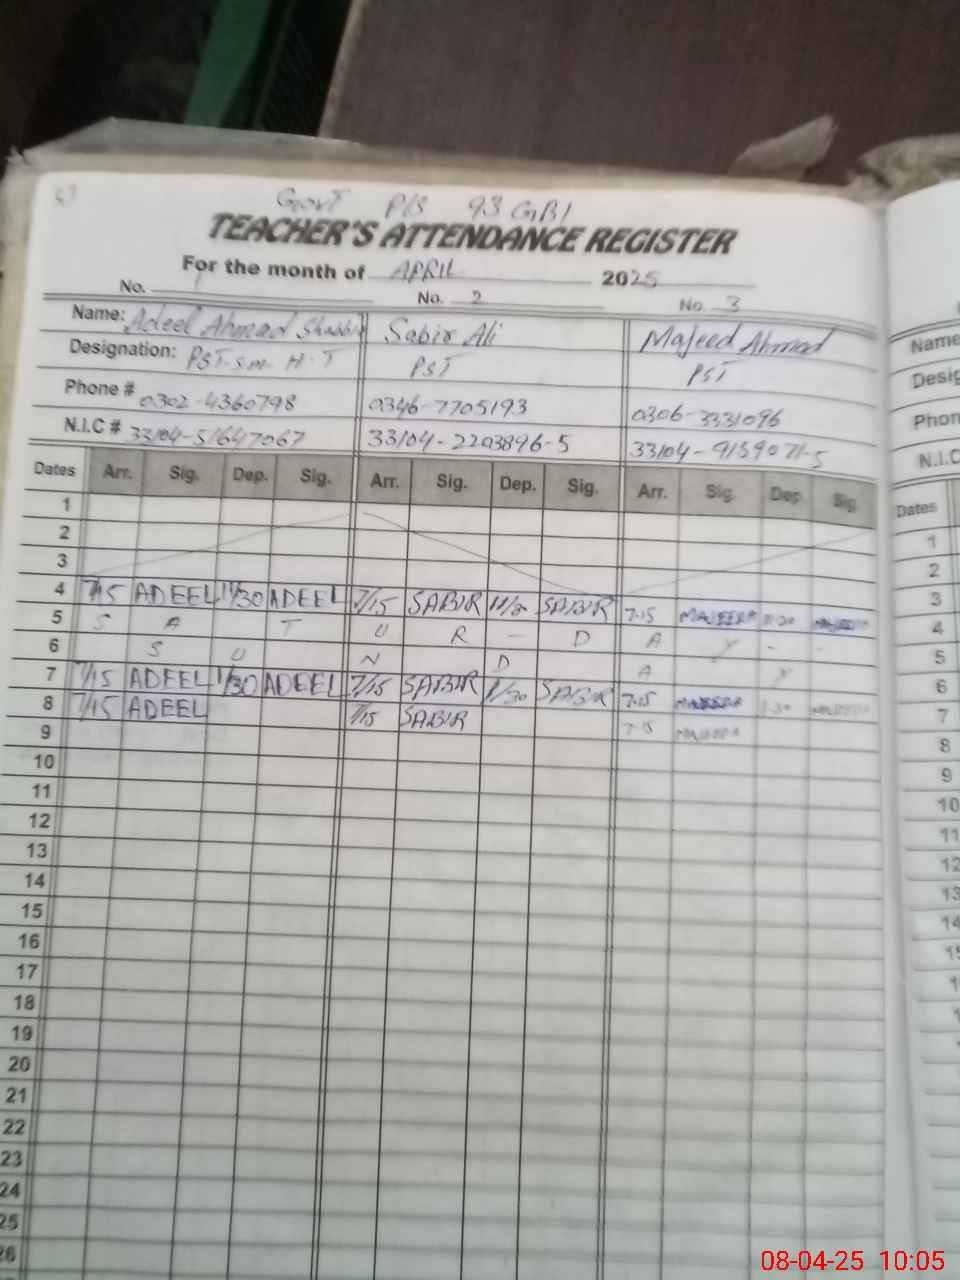 GOVT P/S 93 GB/
TEACHER'S ATTENDANCE REGISTER
For the month of APRIL 2025
No. 1 No. 2 No. 3
Name: Adeel Ahmad Shabbir Sabir Ali Majeed Ahmad
Designation: PST PST
Phone # 0302-4360798 0346-7705193 0306-3331096
N.I.C # 33104-51647067 33104-2203896-5 33104-9159071-5
Dates Arr. Sig. Dep. Sig. Arr. Sig. Dep. Sig. Arr. Sig. Dep. Sig.
1
2
3
4 7/15 ADEEL 11/30 ADEEL 7/15 SABIR SABIR 7-15 MAJEED
5 S A T U R - D A Y - -
6 S U N D A Y
7 7/15 ADEEL 1/30 ADEEL 7/15 SABIR 1/30 SABIR 7-15 MAJEED 1-30 MAJEED
8 7/15 ADEEL 7/15 SABIR 7-15 MAJEED
9
10
11
12
13
14
15
16
17
18
19
20
21
22
23
24
25
26
Name
Desig
Phon
N.I.C
Dates
1
2
3
4
5
6
7
8
9
10
11
12
13
14
08-04-25 10:05